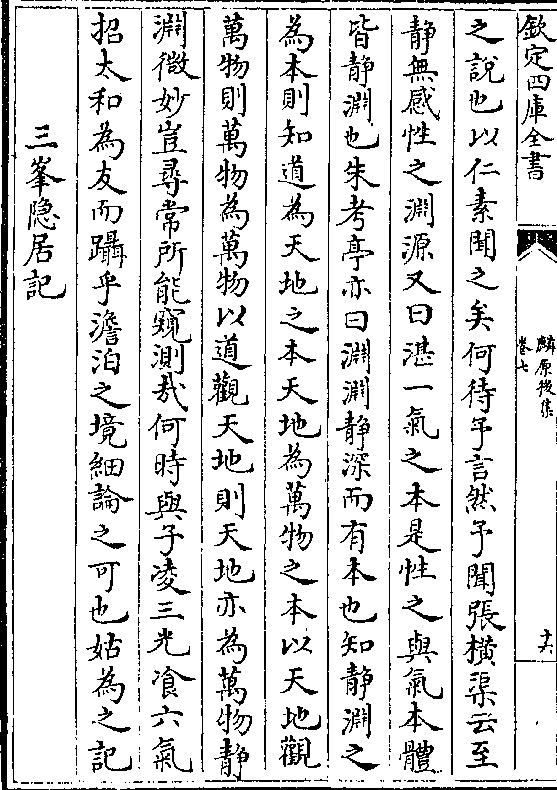 欽定四庫全書
麟原後集
卷七
十六
之說也以仁素聞之矣何待予言然予聞張橫渠云至
静無感性之淵源又曰湛一氣之本是性之與氣本體
皆静淵也朱考亭亦曰淵淵静深而有本也知静淵之
為本則知道為天地之本天地為萬物之本以天地觀
萬物則萬物為萬物以道觀天地則天地亦為萬物静
淵微妙豈尋常所能窺測哉何時與子凌三光飡六氣
招太和為友而躡乎澹泊之境細論之可也姑為之記
三峯隐居記